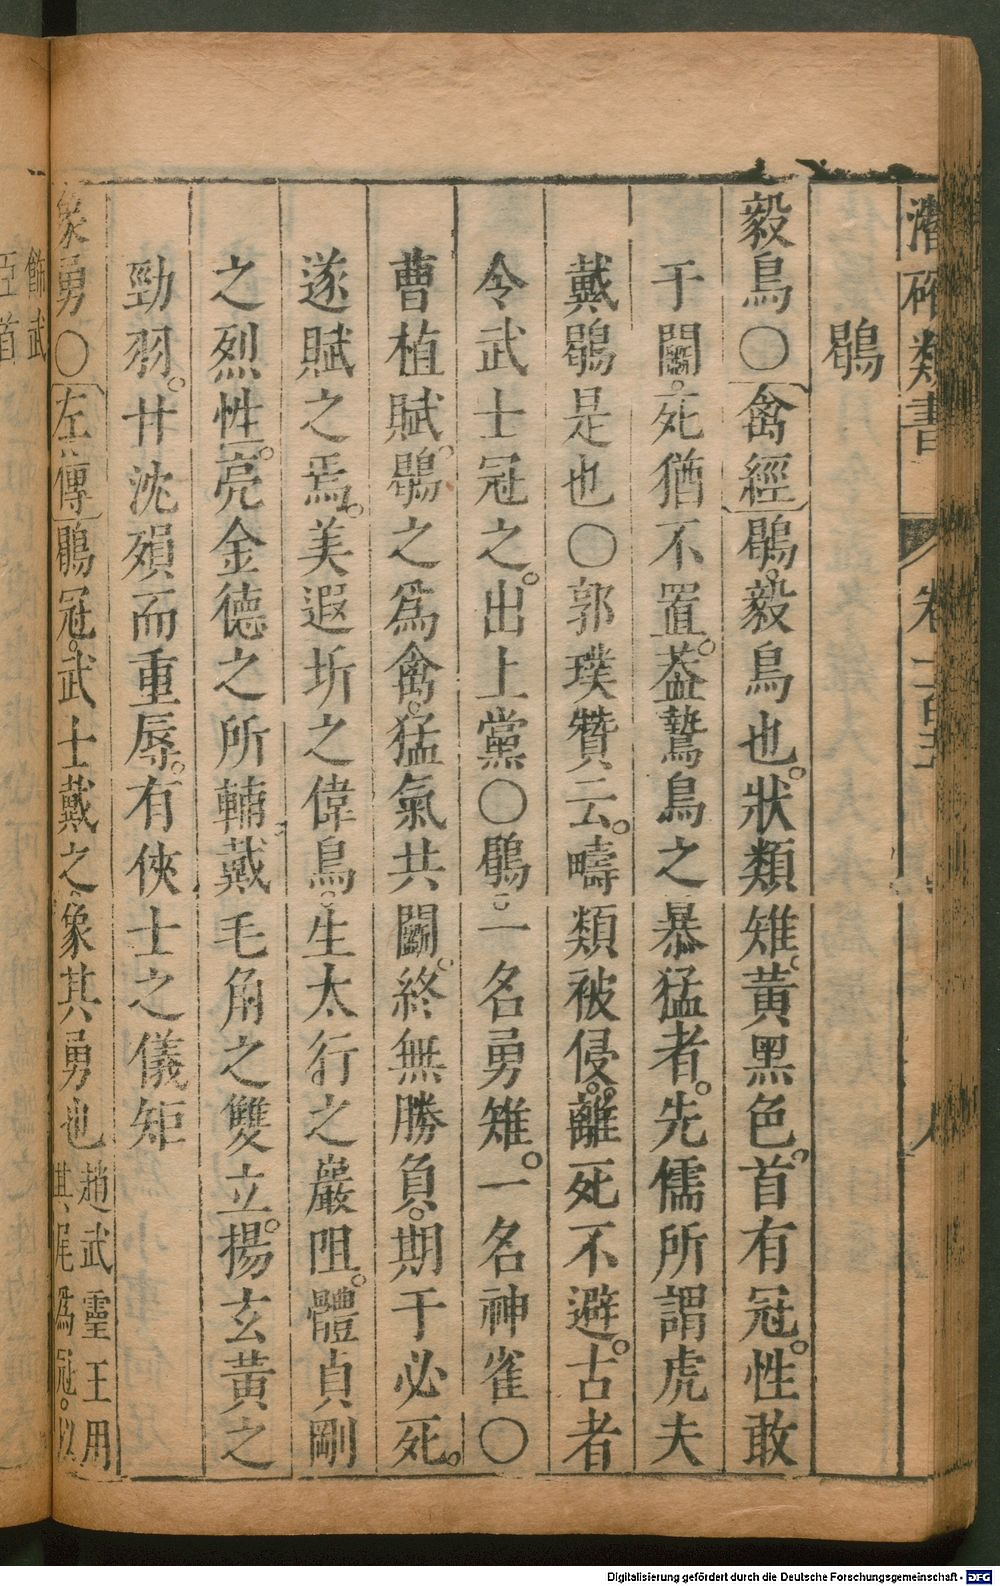 潛確類書 卷一百五 八
鶡
毅鳥〇禽經鶡毅鳥也。狀類雉。黃黑色。首有冠。性敢
于鬭。死猶不置。葢鷙鳥之暴猛者。先儒所謂虎夫
戴鶡是也〇郭璞贊云。疇類被侵。雖死不避。古者
令武士冠之。出上黨〇鶡。一名勇雉。一名神雀〇
曹植賦。鶡之爲禽。猛氣共鬭。終無勝負。期于必死。
遂賦之焉。美遐圻之偉鳥。生太行之巖阻。體貞剛
之烈性。亮金德之所輔。戴毛角之雙立。揚玄黃之
勁羽。甘沈殞而重辱。有俠士之儀矩
象勇〇左傳鶡冠。武士戴之。象其勇也 趙武靈王用
其尾爲冠。以
飾武
臣首
Digitalisierung gefördert durch die Deutsche Forschungsgemeinschaft - DFG